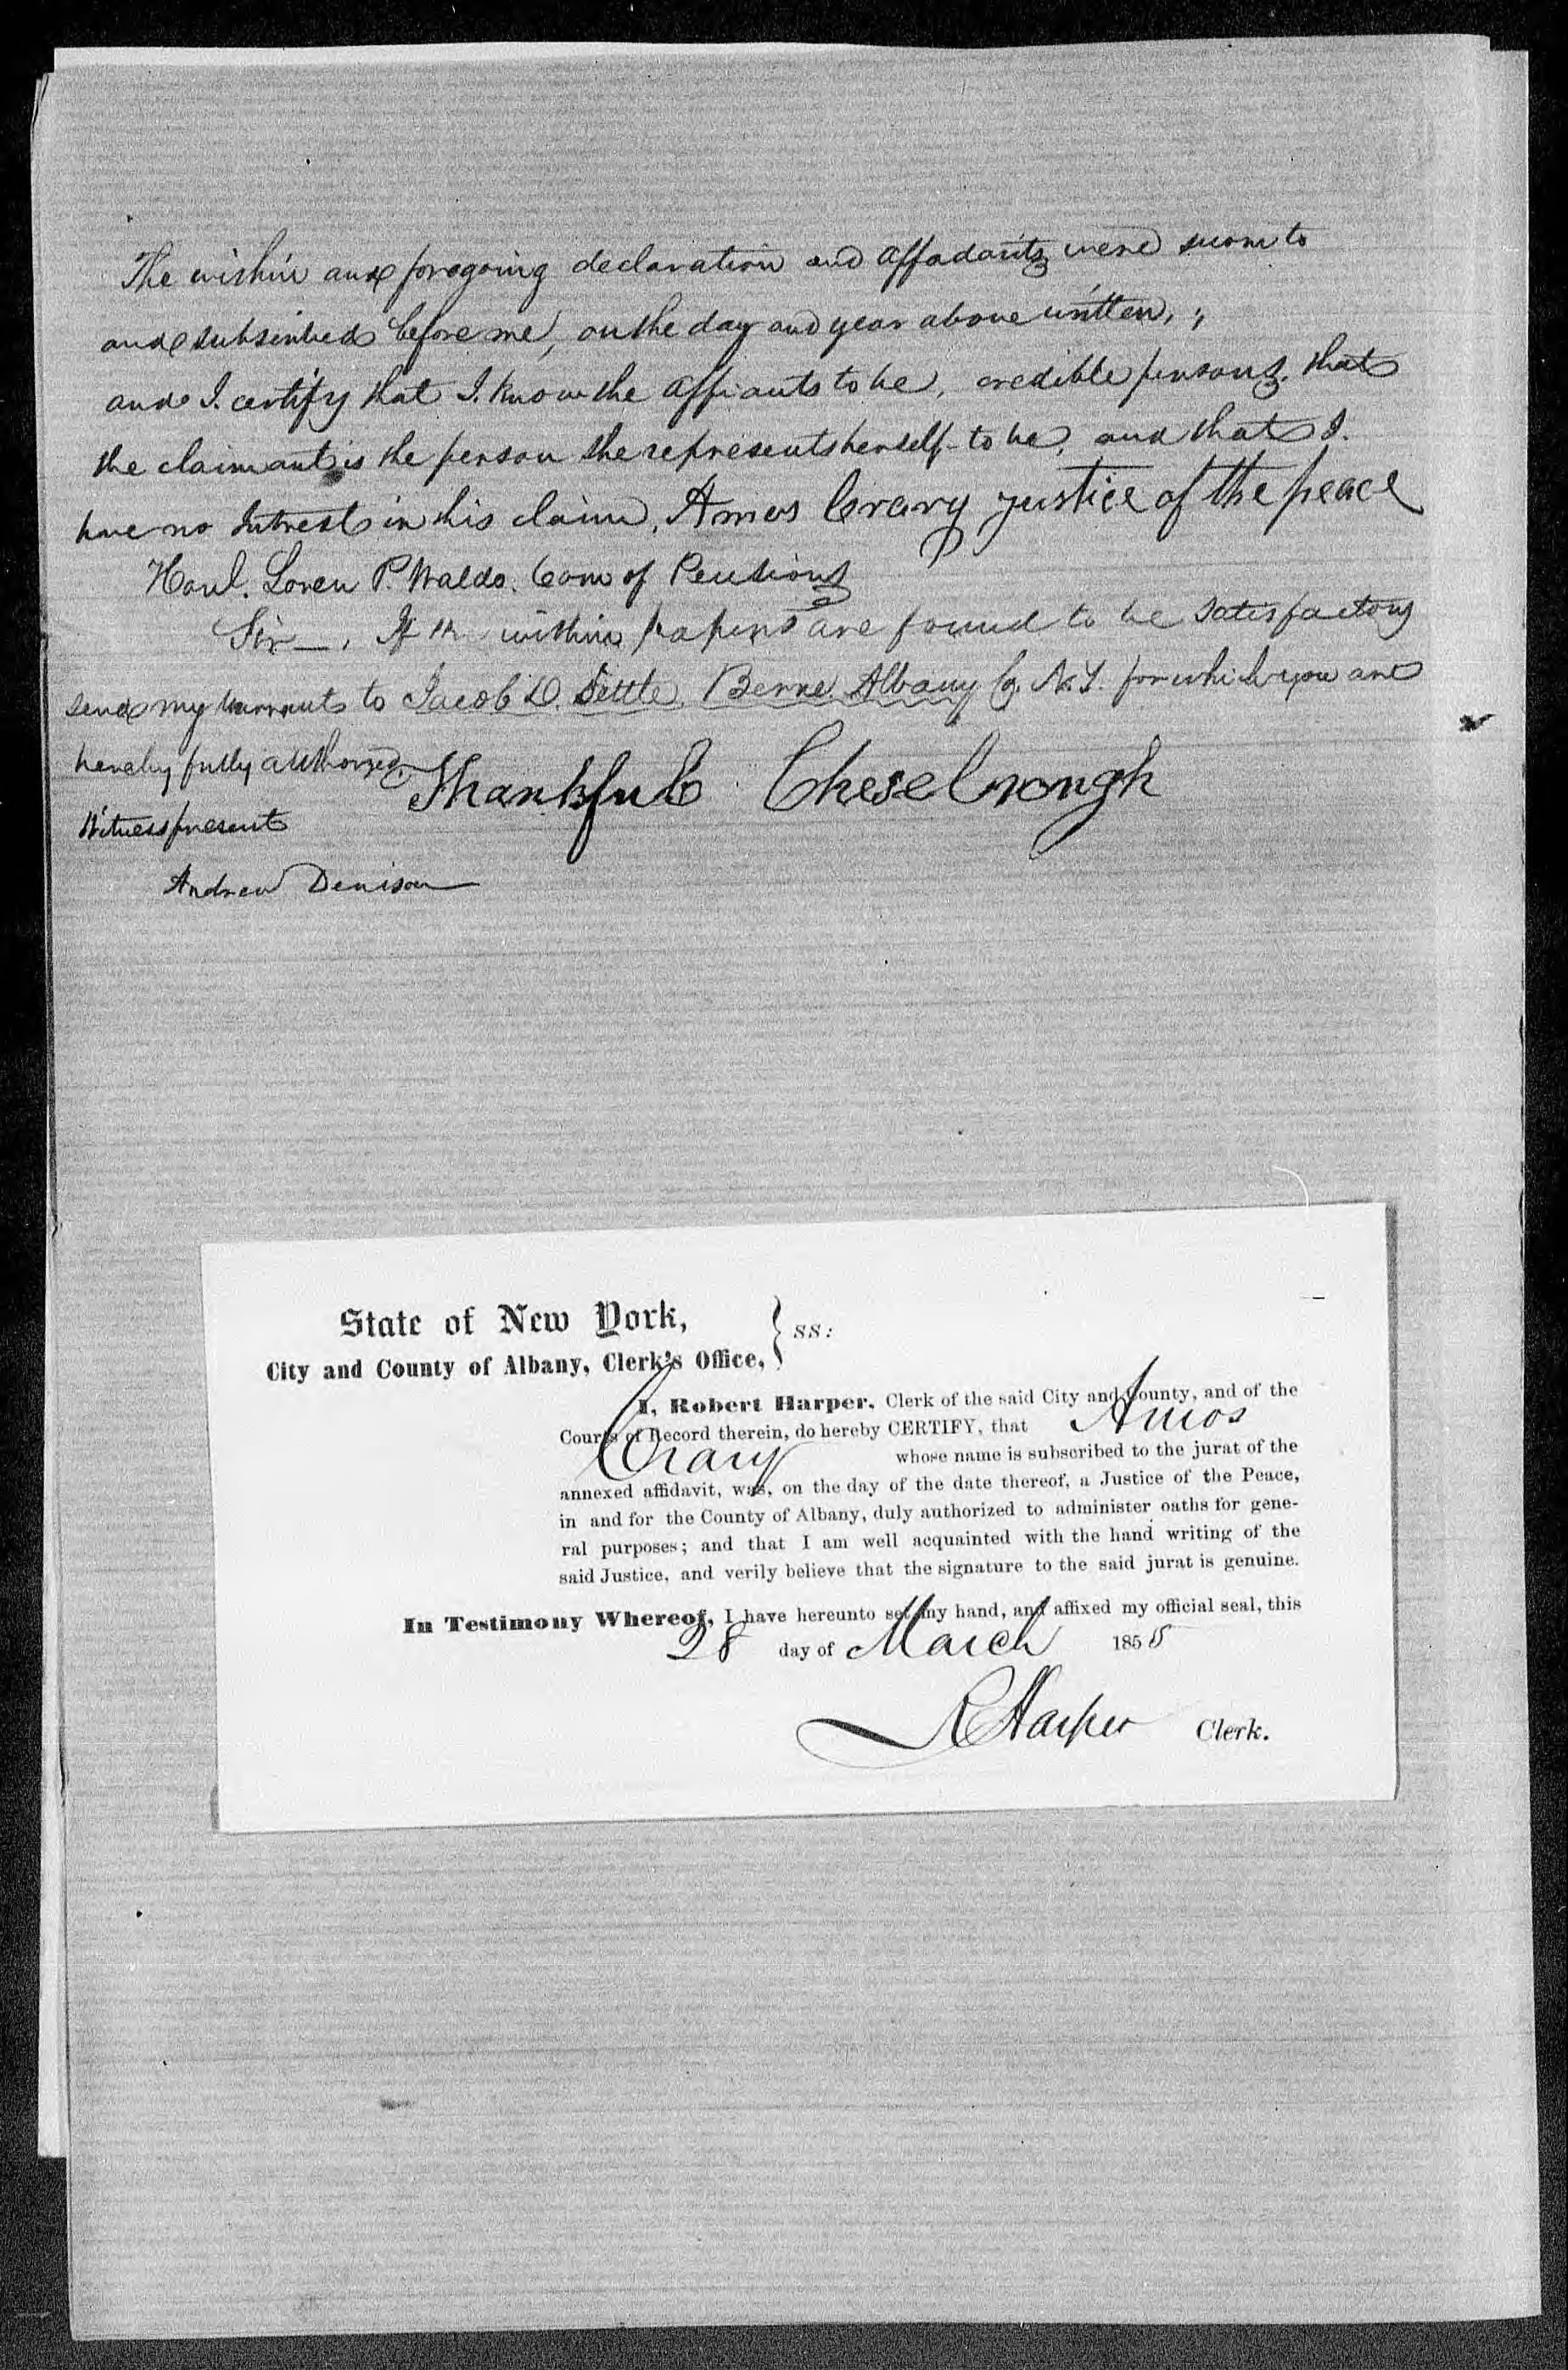 The within and foregoing declaration and affadavits were sworn to
and subscribed before me, on the day and year above written,
and I certify that I know the affiants to be, credible persons, that
the claimant is the person she represents herself to be, and that I.
have no Intrest in this claim. Amos Crary Justice of the peace
Honl. Loren P. Waldo. Com of Pensions
Sir —, If the within papers are found to be satisfactory
send my warrants to Jacob D. Settle, Berne Albany Co. N.Y. for which you are
hereby fully authorized.
Thankful Chesebrough
Witness present
Andrew Denison
State of New York,
City and County of Albany, Clerk's Office, } ss:
I, Robert Harper, Clerk of the said City and County, and of the
Courts of Record therein, do hereby CERTIFY, that Amos
Crary whose name is subscribed to the jurat of the
annexed affidavit, was, on the day of the date thereof, a Justice of the Peace,
in and for the County of Albany, duly authorized to administer oaths for gene-
ral purposes; and that I am well acquainted with the hand writing of the
said Justice, and verily believe that the signature to the said jurat is genuine.
In Testimony Whereof, I have hereunto set my hand, and affixed my official seal, this
28 day of March 1855
R Harper Clerk.